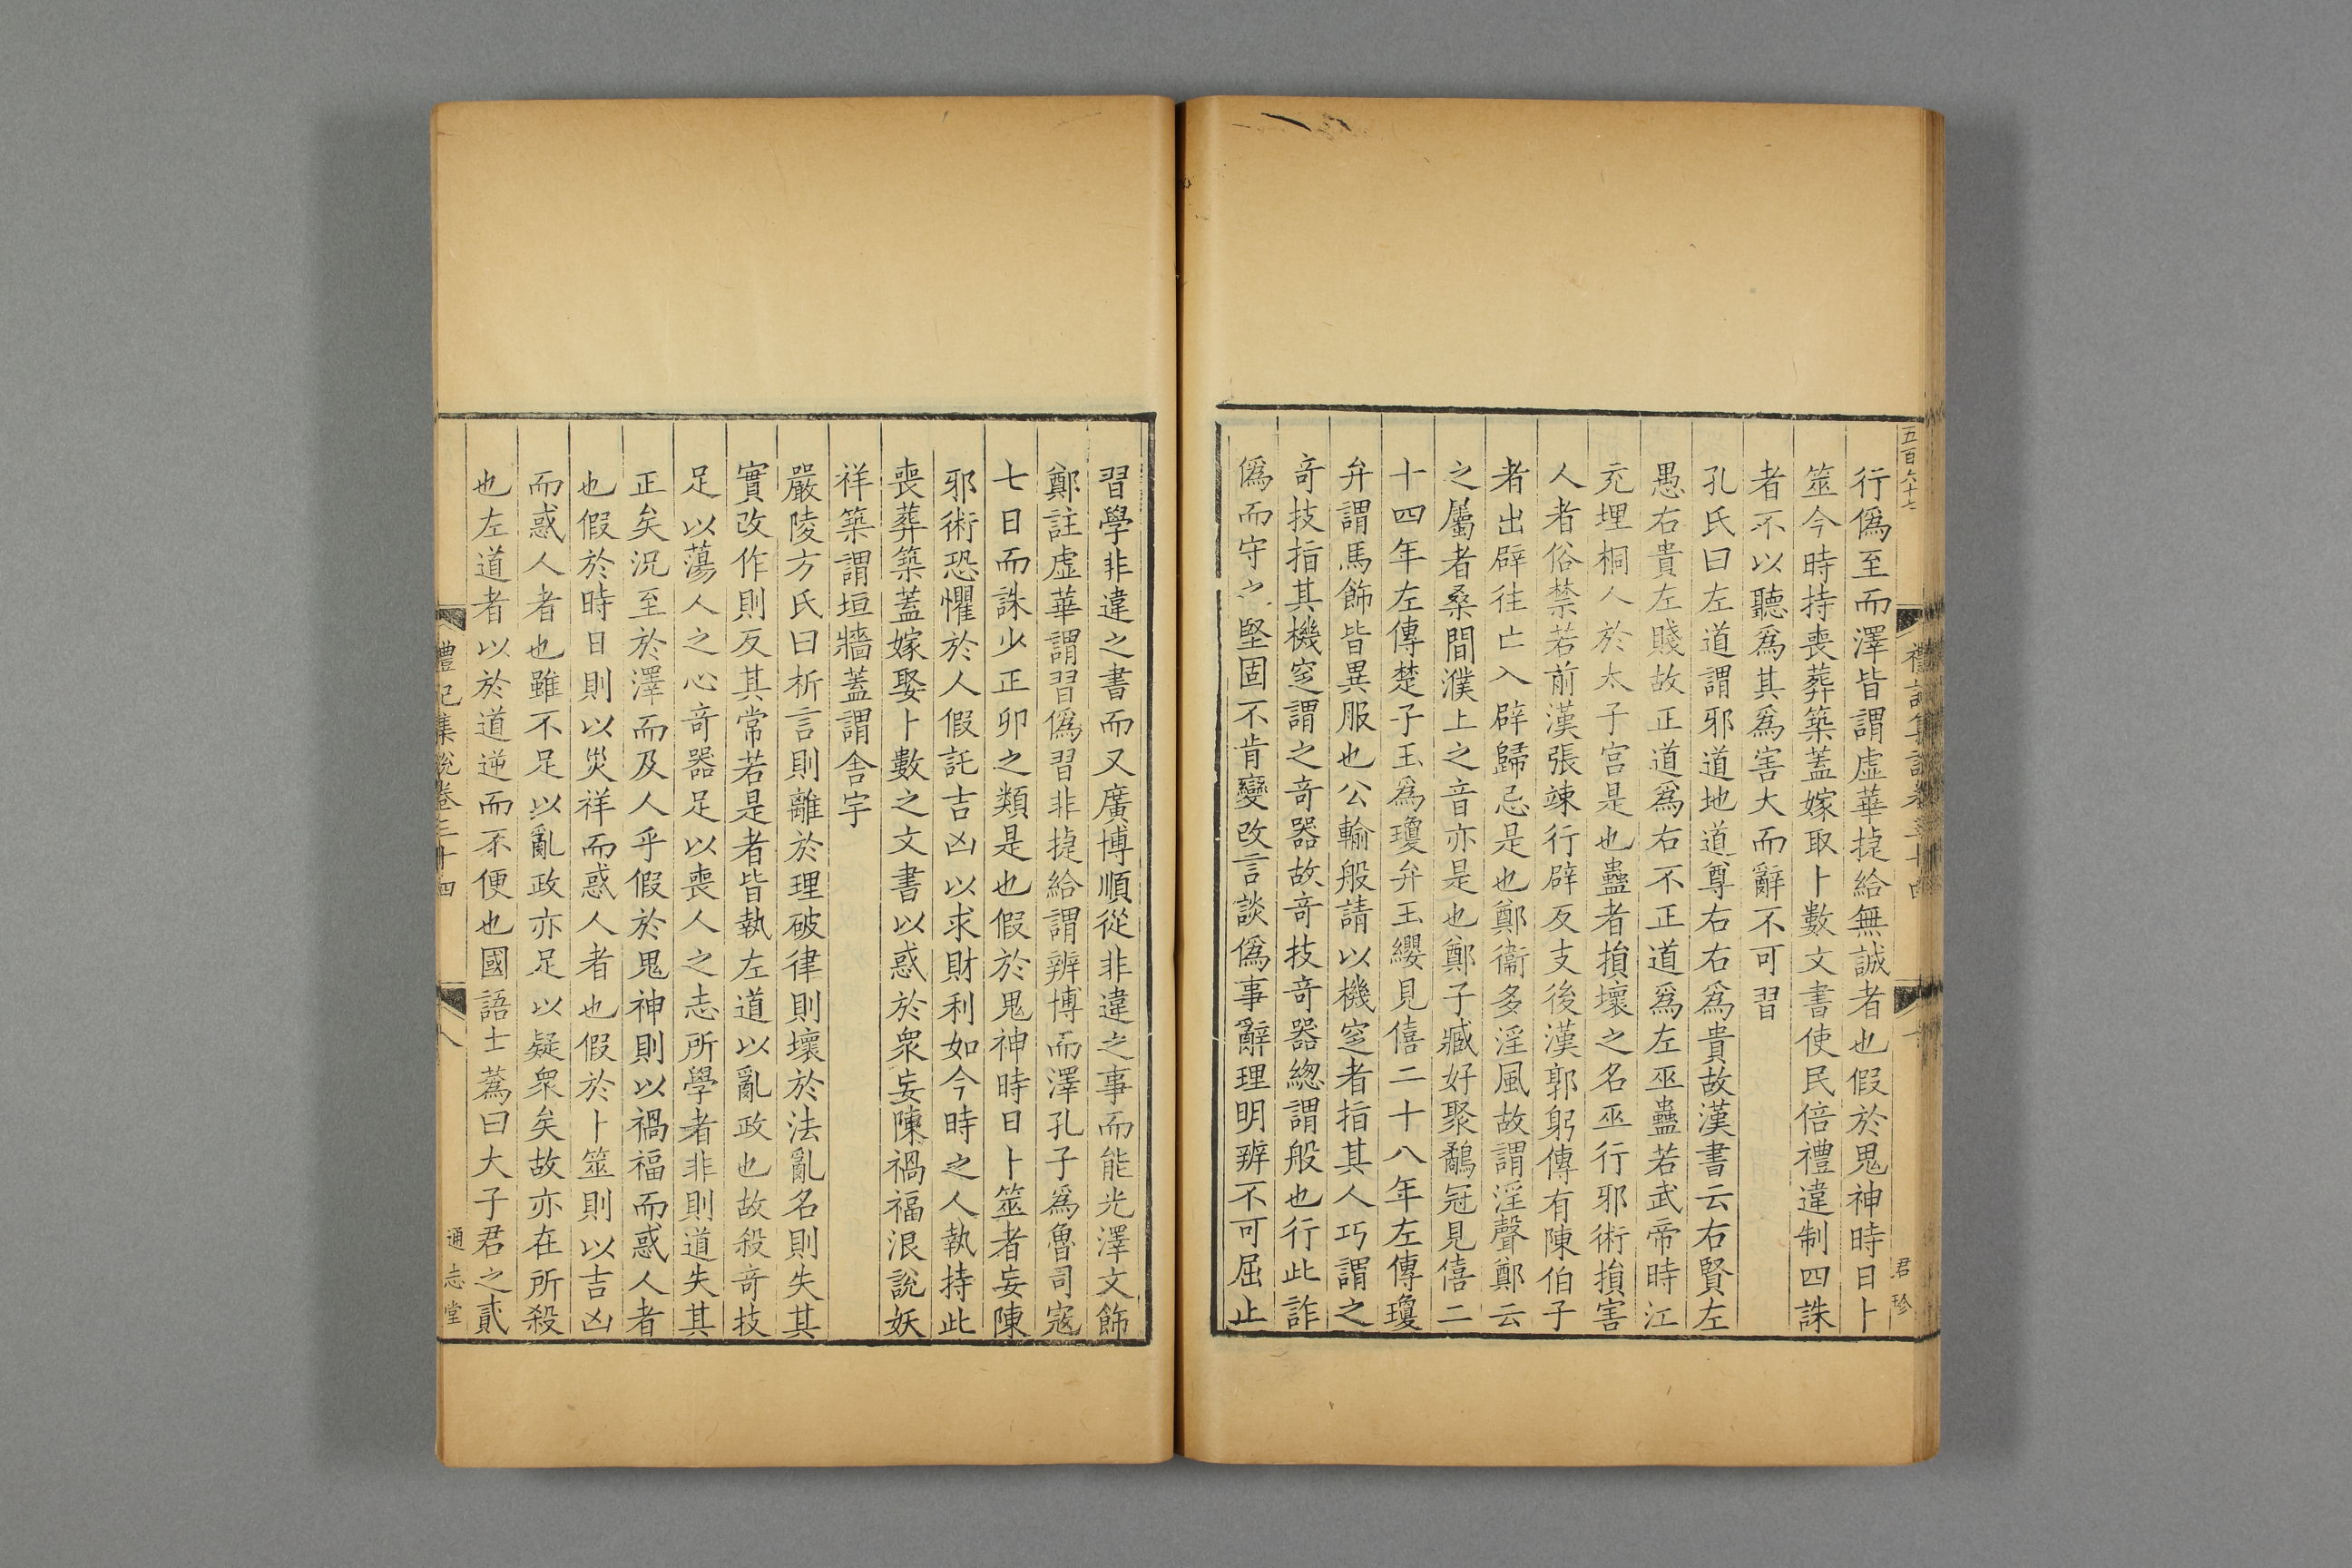 五百六十七
行僞至而澤皆謂虛華捷給無誠者也假於鬼神時日卜
筮今時持喪葬築蓋嫁取卜數文書使民倍禮違制四誅
者不以聽爲其爲害大而辭不可習
孔氏曰左道謂邪道地道尊右右爲貴故漢書云右賢左
愚右貴左賤故正道爲右不正道爲左巫蠱若武帝時江
充埋桐人於太子宮是也蠱者損壞之名巫行邪術損害
人者俗禁若前漢張竦行辟反支後漢郭躬傳有陳伯子
者出辟往亡入辟歸忌是也鄭衞多淫風故謂淫聲鄭云
之屬者桑間濮上之音亦是也鄭子臧好聚鷸冠見僖二
十四年左傳楚子玉爲瓊弁玉纓見僖二十八年左傳瓊
弁謂馬飾皆異服也公輸般請以機窆者指其人巧謂之
奇技指其機窆謂之奇器故奇技奇器緫謂般也行此詐
僞而守之堅固不肯變改言談僞事辭理明辨不可屈止
君珍
習學非違之書而又廣博順從非違之事而能光澤文飾
鄭註虛華謂習僞習非捷給謂辨博而澤孔子爲魯司寇
七日而誅少正卯之類是也假於鬼神時日卜筮者妄陳
邪術恐懼於人假託吉凶以求財利如今時之人執持此
喪葬築蓋嫁娶卜數之文書以惑於衆妄陳禍福浪說妖
祥築謂垣牆蓋謂舍宇
嚴陵方氏曰析言則離於理破律則壞於法亂名則失其
實改作則反其常若是者皆執左道以亂政也故殺奇技
足以蕩人之心奇器足以喪人之志所學者非則道失其
正矣況至於澤而及人乎假於鬼神則以禍福而惑人者
也假於時日則以災祥而惑人者也假於卜筮則以吉凶
而惑人者也雖不足以亂政亦足以疑衆矣故亦在所殺
也左道者以於道逆而不便也國語士蔿曰大子君之貳
禮記集說卷三十四
八
通志堂